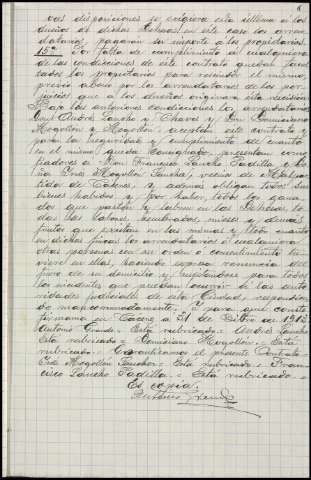 vas disposiciones se exigiera esta última a los
dueños de dichas dehesas en este caso los arren-
datarios pagarán su importe a los propietarios.
15ª Por falta de cumplimiento a cualquiera
de las condiciones de este contrato quedan facul-
tados los propietarios para rescindir el mismo,
previo abono por los arrendatarios de los per-
juicios que a los dueños originara esta rescisión
Bajo las anteriores condiciones los arrendatarios
Don Andrés Sancho y Chaves y Don Domiciano
Mogollon y Mogollon, aceptan este contrato y
para la seguridad y cumplimiento de cuanto
en el mismo queda consignado, presentan como
fiadores a Don Francisco Sancho Padilla y Do-
ña Ines Mogollon Sanchez, vecinos de Malpar-
tida de Cáceres, y además obligan todos sus
bienes habidos y por haber, todos los gana-
dos que pasten y labren en las dehesas to-
das las labores, sembrados, mieses y demás
frutos que existan en las mismas y todo cuanto
en dichas fincas los arrendatarios o cualquiera
otra persona en su orden o consentimiento tu-
viere en ellas, haciendo expresa renuncia del
fuero de su domicilio y sujetandose para todos
los incidentes que puedan ocurrir a las auto-
ridades judiciales de esta Ciudad, respondien-
do mancomunadamente. Y para que conste
firmamos en Cáceres a 21 de Octbre de 1912
Antonio Grande. Está rubricado. Andrés Sancho
Está rubricado. Domiciano Mogollon. Está
rubricado. Garantizamos el presente Contrato.
Ines Mogollon Sanchez. Está rubricado. Fran-
cisco Sancho Padilla. Está rubricado.
Es copia.